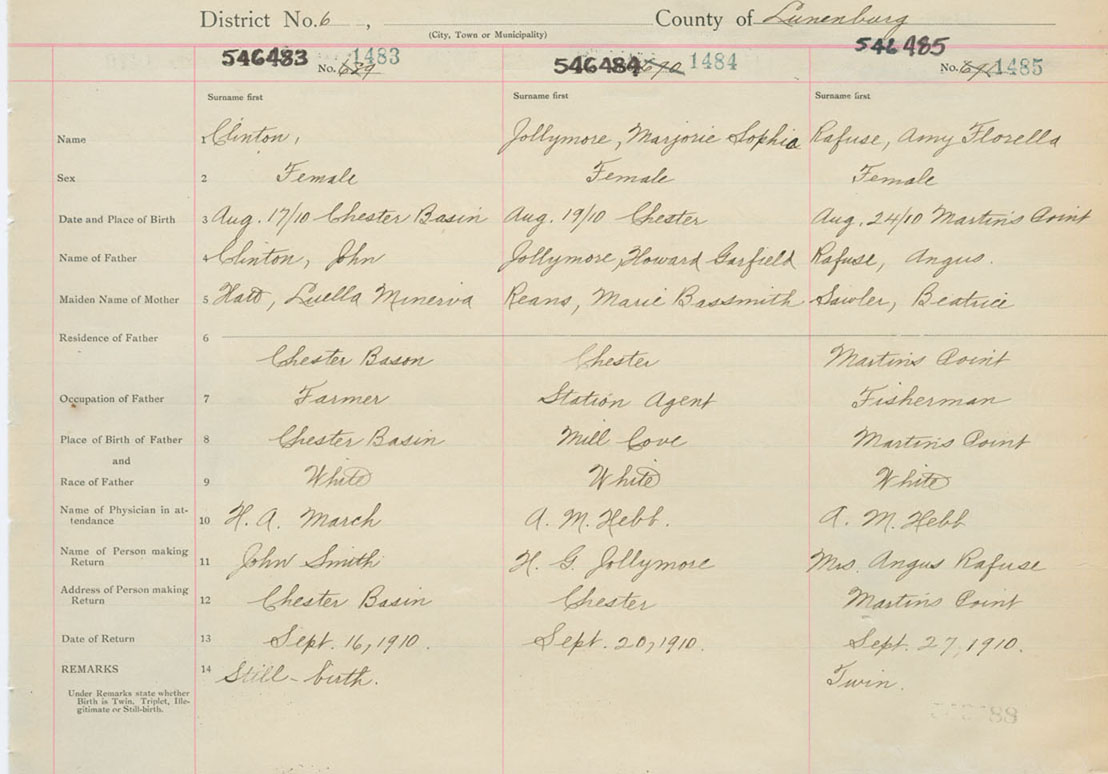 District No. 6, County of Lunenburg
(City, Town or Municipality)
546483 1483 546484 1484 546485 1485
No. 689 690 No.
Surname first Surname first Surname first
Name 1 Clinton, Jollymore, Marjorie Sophia Rafuse, Amy Florella
Sex 2 Female Female Female
Date and Place of Birth 3 Aug. 17/10 Chester Basin Aug. 19/10 Chester Aug. 24/10 Martins Point
Name of Father 4 Clinton, John Jollymore, Howard Garfield Rafuse, Angus.
Maiden Name of Mother 5 Hatt, Luella Minerva Reans, Marie Bassmith Sawler, Beatrice
Residence of Father 6
Chester Bason Chester Martins Point
Occupation of Father 7 Farmer Station Agent Fisherman
Place of Birth of Father 8 Chester Basin Mill Cove Martins Point
and
Race of Father 9 White White White
Name of Physician in at-
tendance 10 H. A. March A. M. Hebb. A. M. Hebb
Name of Person making
Return 11 John Smith H. G. Jollymore Mrs. Angus Rafuse
Address of Person making
Return 12 Chester Basin Chester Martins Point
Date of Return 13 Sept. 16, 1910. Sept. 20, 1910. Sept. 27, 1910.
REMARKS 14 Still-birth. Twin.
Under Remarks state whether
Birth is Twin, Triplet, Ille-
gitimate or Still-birth.